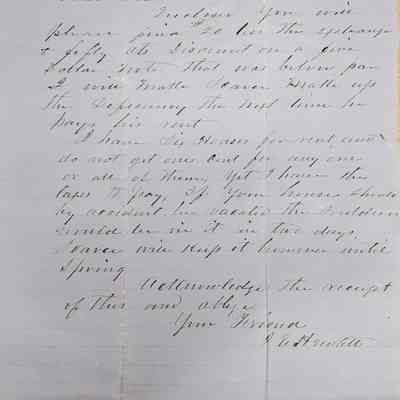 Enclosed You will
please find $20 less the exchange
& fifty cts Discount on a five
Dollar Note that was below par
I will make Soarce Make up
the Deficiency the Next time he
pays his rent
I have Six Houses for rent and
do not get one cent for any one
or all of them, Yet I have the
taxes to pay, If Your house should
by accident be vacated the
would be in it in two days,
Soarce will keep it however until
Spring
Acknowledge the receipt
of this and oblige
Your Friend